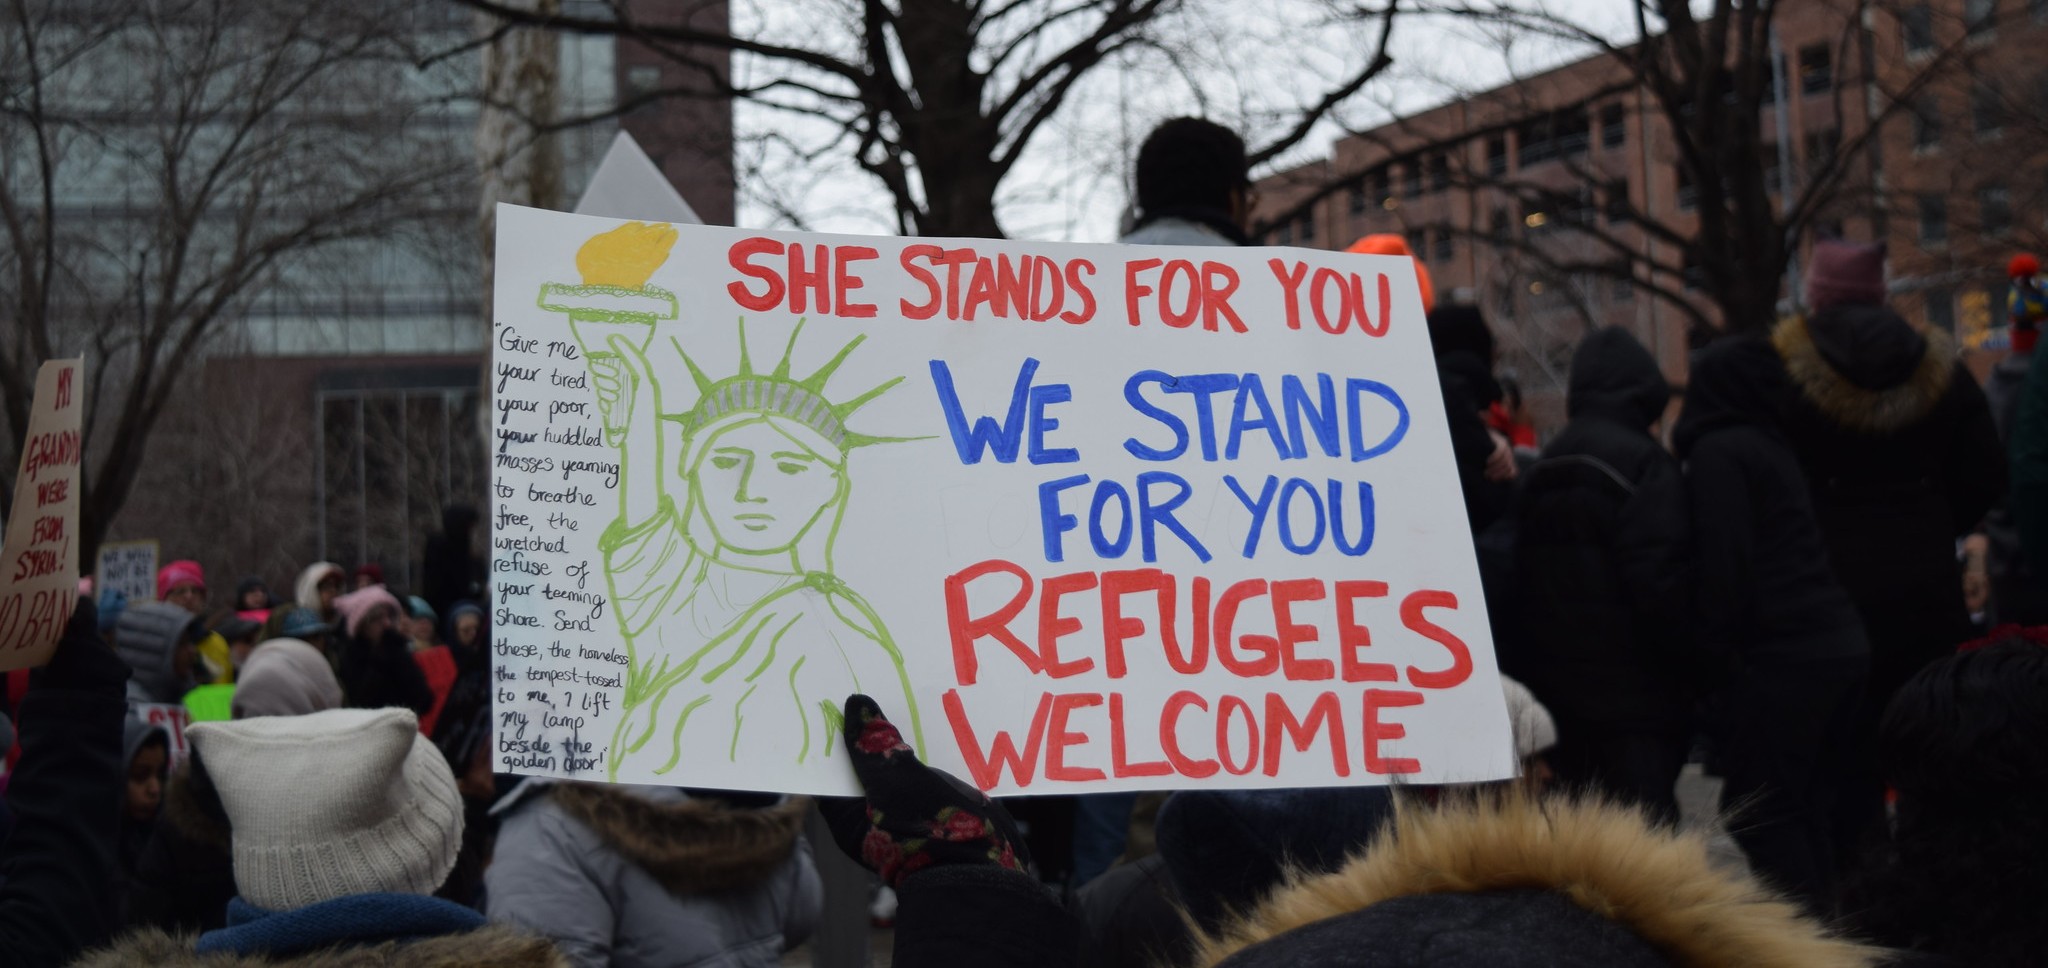 SHE STANDS FOR YOU
WE STAND
FOR YOU
REFUGEES
WELCOME
"Give me
your tired,
your poor,
your huddled
masses yearning
to breathe
free, the
wretched
refuse of
your teeming
shore. Send
these, the homeless,
the tempest-tossed
to me, I lift
my lamp
beside the
golden door!"
MY
WERE
FROM
SYRIA!
BAN
WE WILL
NOT BE